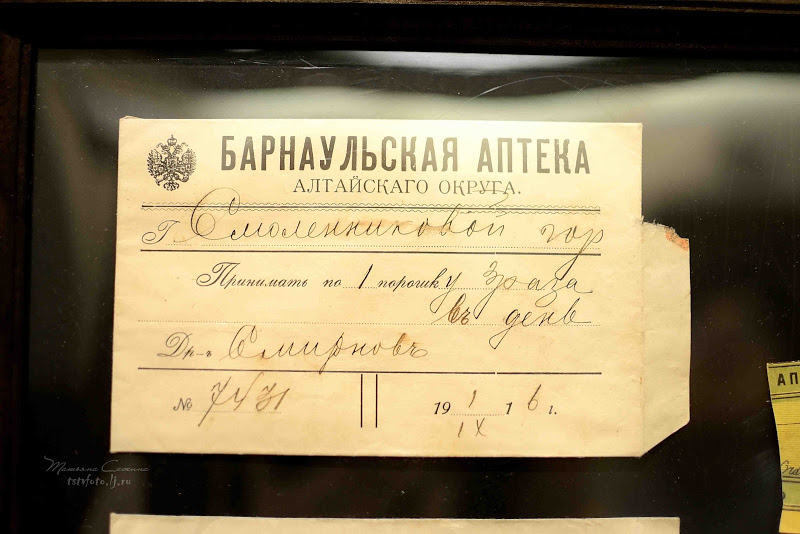 БАРНАУЛЬСКАЯ АПТЕКА
АЛТАЙСКАГО ОКРУГА.
Г. Смоленниковой гор
Принимать по 1 порошку 3 раза
въ день
Др-ъ Смирновъ
№ 7431
19 1/IX 16 г.
АП
Татьяна
tstvfoto.lj.ru